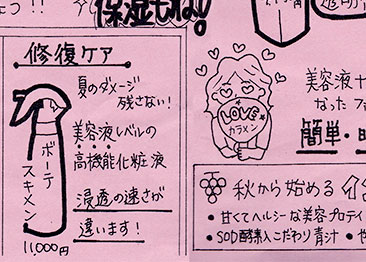 保湿もね!
修復ケア
夏のダメージ
残さない!
美容液レベルの
高機能化粧液
浸透の速さが
違います!
ボーテ
スキメン
11,000円
LOVE
カラメン
美容液
なった
簡単・
秋から始める
• 甘くてヘルシーな美容プロテイ
• SOD酵素入こだわり青汁 •